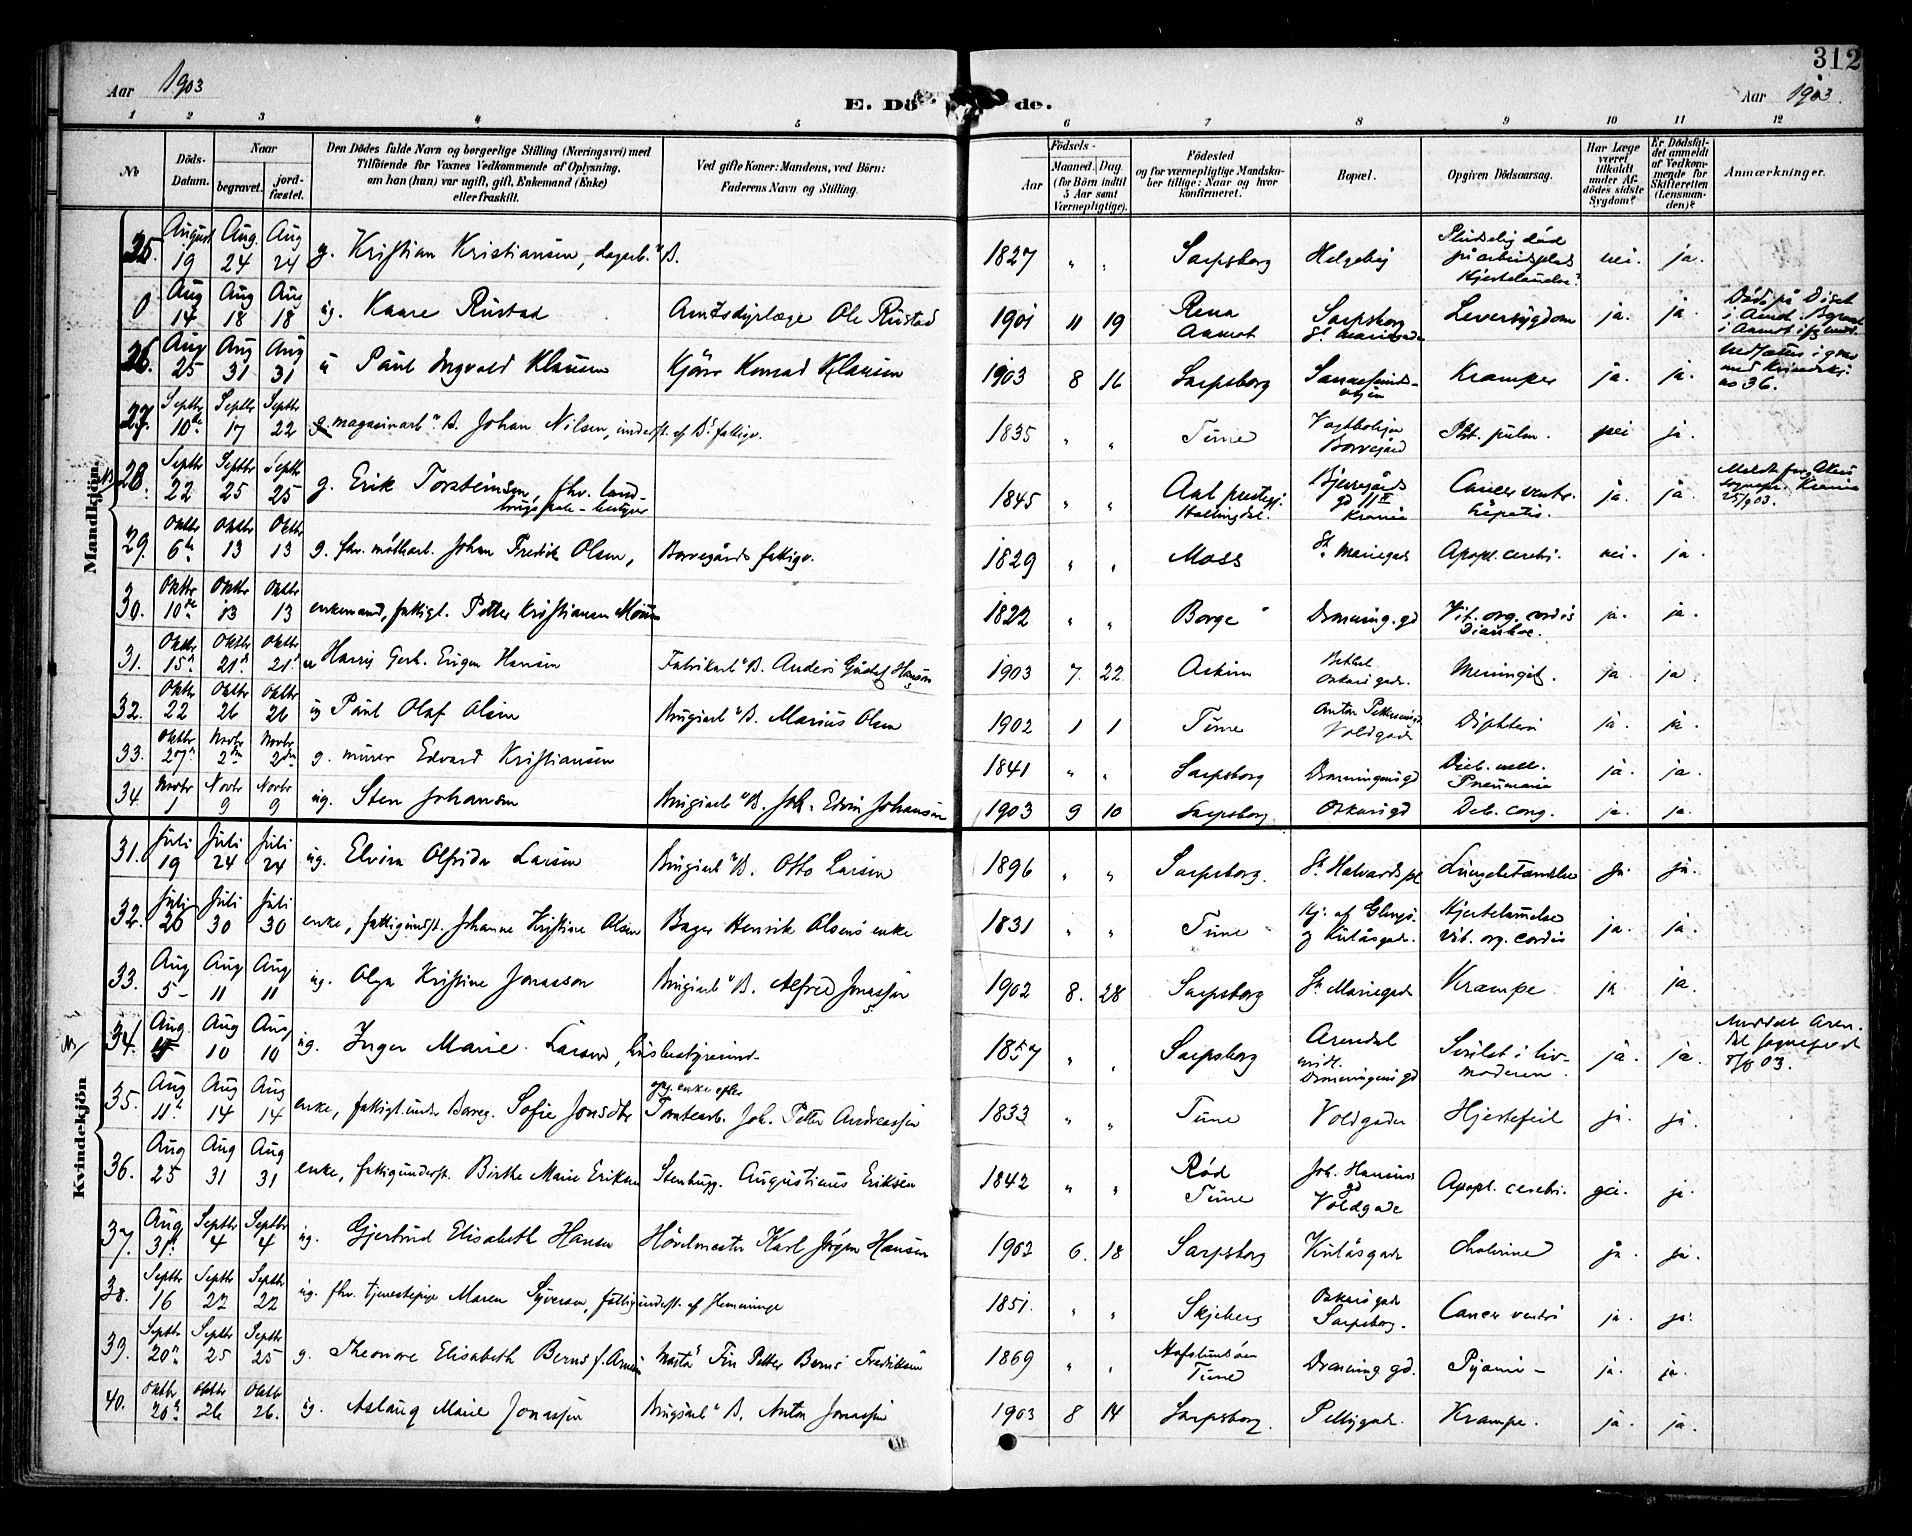 312
Aar 1903
E. Dö de.
Aar 1903.
1 2 3 4 5 6 7 8 9 10 11 12
No
Döds-
Datum.
Naar
begravet.
jord-
fæstet.
Den Dödes fulde Navn og borgerlige Stilling (Næringsvei) med
Tilföiende for Voxnes Vedkommende af Oplysning,
om han (hun) var ugift, gift, Enkemand (Enke)
eller fraskilt.
Ved gifte Koner: Mandens, ved Börn:
Faderens Navn og Stilling.
Födsels-
Aar
Maaned. Dag.
(for Börn indtil
5 Aar samt
Værnepligtige).
Födested
og for værnepligtige Mandska-
ber tillige: Naar og hvor
konfirmeret.
Bopæl.
Opgiven Dödsaarsag.
Har Læge
været
tilkaldt
under Af-
dödes sidste
Sygdom?
Er Dödsfal-
det anmeldt
af Vedkom-
mende for
Skifteretten
(Lensman-
den)?
Anmærkninger.
Mandkjön.
25. August 19 Aug. 24 Aug 24 g. Kristian Kristiansen, dagarb. B. 1827 " " Sarpsborg Helgeby Pludselig död på arbeidsplads Hjertelamelse? nei. ja.
0 Aug 14 Aug 18 Aug 18 ug. Kaare Rustad Amtsdyrlæge Ole Rustad 1901 11 19 Rena Aamot Sarpsborg St Mariegade Leversygdom ja. ja.
26. Aug 25 Aug 31 Aug 31 u Paul Ingvald Klausen Kjörer Konrad Klausen 1903 8 16 Sarpsborg Krampe ja. ja. no 36.
27. Septbr 10de Septbr 17 Septbr 22 g magasinarb. B. Johan Nilsen, underst. af B's fattigv. 1835 " " Tune Borregård Pht. pulm. nei ja.
28. Septbr 22 Septbr 25 Septbr 25 g. Erik Torsteinsen, fhv. landbrugsskole-bestyrer 1845 " " Aal prestegj. Hallingdal. Bjerregårds gd 11 II Krania Cancer ventr. hepatis. ja. ja. 25/9 03.
29. Oktbr 6te Oktbr 13 Oktbr 13 g. fhv. mölkarb. Johan Fredrik Olsen, Borregårds fattigv. 1829 " " Moss St. Mariegade Apopl. cerebri. nei. ja.
30. Oktbr 10de Oktbr 13 Oktbr 13 enkemand, fattigl. Petter Kristiansen Moum 1822 " " Borge Dronning. gd Vit. org. cordis Diarrhoe. ja. ja.
31. Oktbr 15 Oktbr 21 Oktbr 21 u Harry Gerh. Eugen Hansen Fabrikarb. B. Anders Gustaf Hansen 1903 7. 22 Askim Oskarsgade. Meningit. ja ja
32. Oktbr 22 Oktbr 26 Oktbr 26 ug Paul Olaf Olsen Brugsarb. B. Marius Olsen 1902 1 1 Tune Voldgade Diphteri ja. ja.
33. Oktbr 27 Novbr 2den Novbr 2den g. murer Edvard Kristiansen 1841 " " Sarpsborg Dronningensgd Diab. mell. Pneumonia ja. ja.
34. Novbr 1 Novbr 9 Novbr 9 ug. Sten Johansen Brugsarb. B. Joh. Edvin Johansen 1903 9 10 Sarpsborg Oskarsgd Deb. cong. ja. ja.
Kvindekjön
31. Juli 19 Juli 24 Juli 24 ug. Elvira Olfrida Larsen Brugsarb. B. Otto Larsen 1896 " " Sarpsborg. St. Halvards pl Lungebetændelse ja ja.
32. Juli 26 Juli 30 Juli 30 enke, fattigundst. Johanne Kristine Olsen Bager Henrik Olsens enke 1831 " " Tune Hj. af Glengs. og Kulåsgade. Hjertelamelse Vit. org. cordis ja. ja.
33. Aug 5 Aug 11 Aug 11 ug. Olga Kristine Jonasson Brugsarb. B. Alfred Jonassen 1902 8. 28 Sarpsborg St. Mariegade Krampe ja ja.
34. Aug. Aug 10 Aug 10 ug. Inger Marie Larsen, husbestyrerinde 1857 " " Sarpsborg Arendal midl. Dronningensgd Svulst i livmoderen. ja. ja.
35. Aug 11 Aug 14 Aug 14 enke, fattigl. under Borreg. Sofie Jonsdtr opg. enke efter Tomtearb. Joh. Petter Andreassen 1833 " " Tune Voldgaden Hjertefeil ja. ja.
36. Aug 25 Aug 31 Aug 31 enke, fattigunderst. Birthe Marie Eriksen Stenhugg. Augustinus Eriksen 1842 " " Röd Tune Joh. Hansens gd Voldgade Apopl. cerebri. nei. ja.
37. Aug. 31 Septbr 4 Septbr 4 ug. Gjertrud Elisabeth Hansen Hövelmester Karl Jörgen Hansen 1902 6. 18 Sarpsborg Kulåsgade Cholerine ja. ja.
38. Septbr 16 Septbr 22 Septbr 22 ug. fhv. tjenestepige Maren Syversen, fattigunderst. af Hemminge 1851. " " Skjeberg Oskarsgade Sarpsborg. Cancer ventri ja. ja.
39. Septbr 20 Septbr 25 Septbr 25 g. Theonore Elisabeth Berns f. Arnesen Finn Petter Berns Fredriksen 1869 " " Hafslundsöen Tune Dronning. gd. Pyæmi – ja. ja.
40. Oktbr 20 Oktbr 26 Oktbr 26. ug. Aslaug Marie Jonassen Brugsarb. B. Anton Jonassen 1903 8 14 Sarpsborg. Pellygade. Krampe. ja. ja